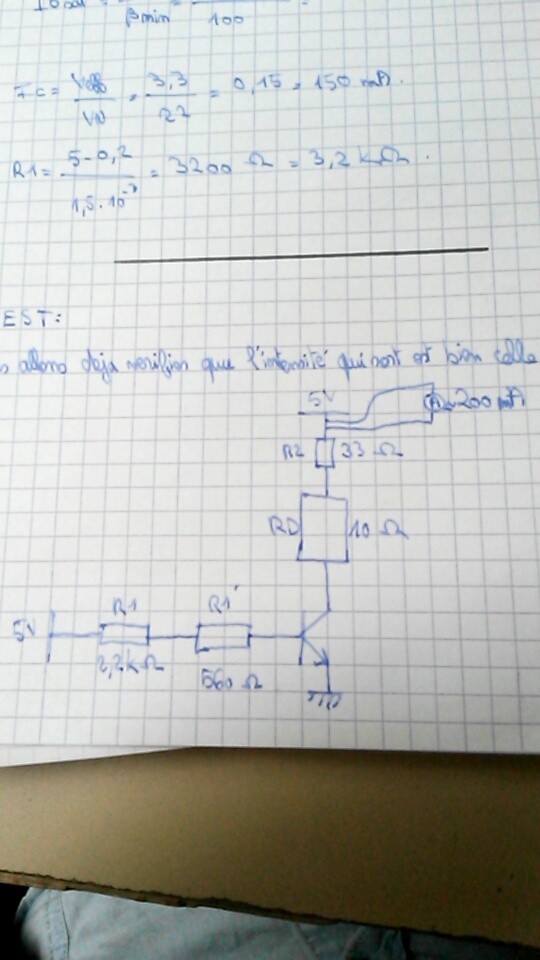 βmin 100
Ic = = 3,3 / 22 = 0,15 = 150 mA.
R1 = 5-0,2 / 1,5.10 = 3200 Ω = 3,2 kΩ.
EST:
allons deja verifier que l'intensité qui sort est bien celle
5V A 200 mA
R2 33 Ω
RD 10 Ω
R1 R1'
5V
2,2kΩ 560 Ω